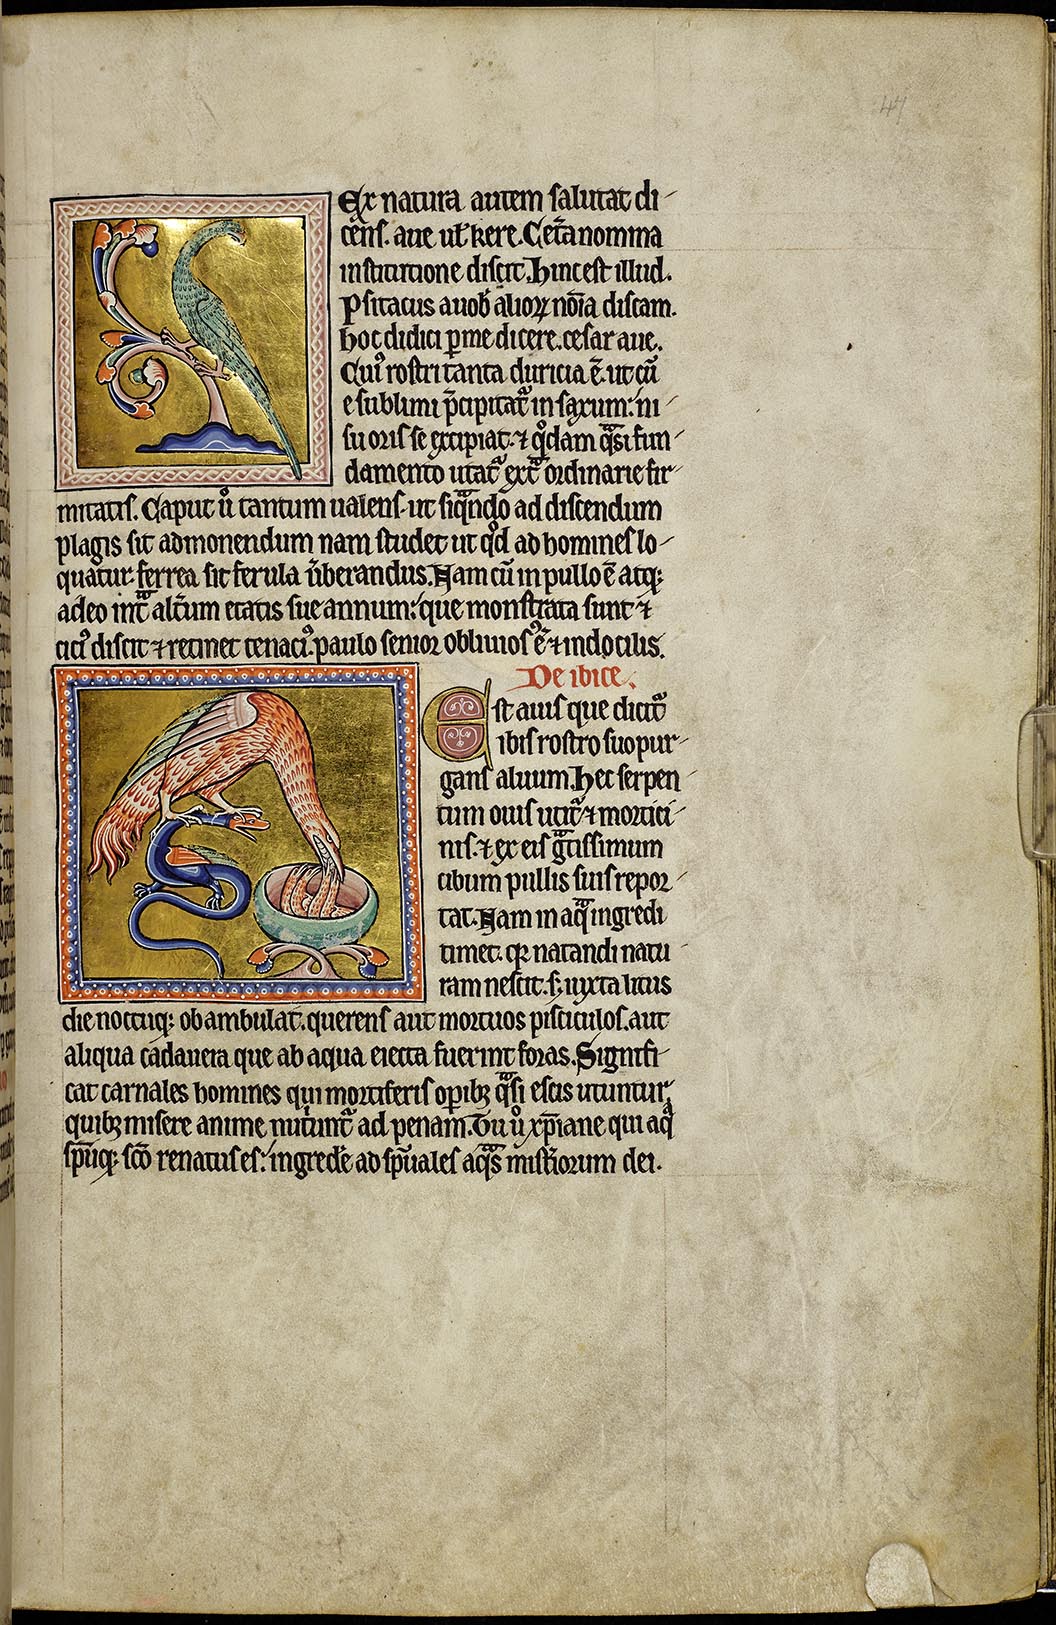 47
Ex natura autem salutat di
cens. aue ul̃ kere. Cet̃a nomina
institutione discit. Hinc est illud.
Psitacus a uob̾ alioꝝ noĩa discam.
hoc didici ꝑ me dicere. cesar aue.
Cui᷒ rostri tanta duricia ē. ut cū
e sublimi p̃cipitat᷑ in saxum: ni
su oris se excipiat. ⁊ qͦdam qᷓsi fun
damento utat᷑ extᷓ ordinarie fir
mitatis. Caput ů tantum ualens. ut siqᷓndo ad discendum
plagis sit admonendum nam studet ut qͦd ad homines lo
quatur. ferrea sit ferula ũberandus. Nam cū in pullo ē atqꝫ
adeo intᷓ alt̃um etatis sue annum: que monstrata sunt ⁊
citi᷒ discit ⁊ retinet tenaci᷒. paulo senior obliuios᷒ ē ⁊ indocilis.
De ibice.
Est auis que dicit᷑
ibis rostro suo pur
gans aluum. Hec serpen
tum ouis utit᷑ ⁊ mortici
nis. ⁊ ex eis gᷓtissimum
cibum pullis suis repor
tat. Nam in aqᷓ ingredi
timet. qꝛ natandi natu
ram nescit. sꝫ iuxta litus
die noctuqꝫ obambulat. querens aut mortuos pisciculos. aut
aliqua cadauera que ab aqua eiecta fuerint foras. Signifi
cat carnales homines qui mortiferis opibꝫ qᷓsi escis utuntur,
quibꝫ misere anime nutiunt᷑ ad penam. Tu ů xp̃iane qui aqᷓ
sp̃uqꝫ sc̃o renatus es: ingredẽ ad sp̃uales aqᷓs mist̃iorum dei.